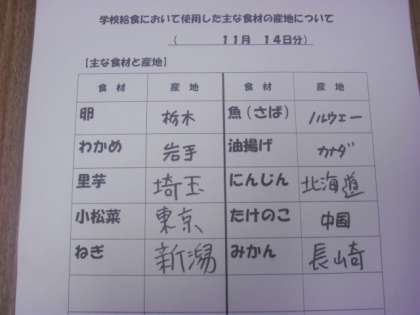 学校給食において使用した主な食材の産地について
（　　　11月　14日分）
【主な食材と産地】
食　材　産　地　食　材　産　地
卵　栃木　魚（さば）　ノルウェー
わかめ　岩手　油揚げ　カナダ
里芋　埼玉　にんじん　北海道
小松菜　東京　たけのこ　中国
ねぎ　新潟　みかん　長崎